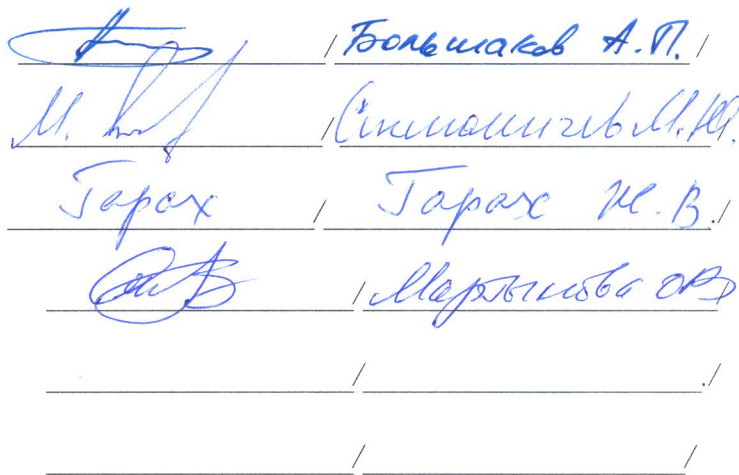 / Большаков А.П. /
М. / М.Ю. /
Гарах / Гарах Ж.В. /
/ Мартынова ОВ /
/ /
/ /